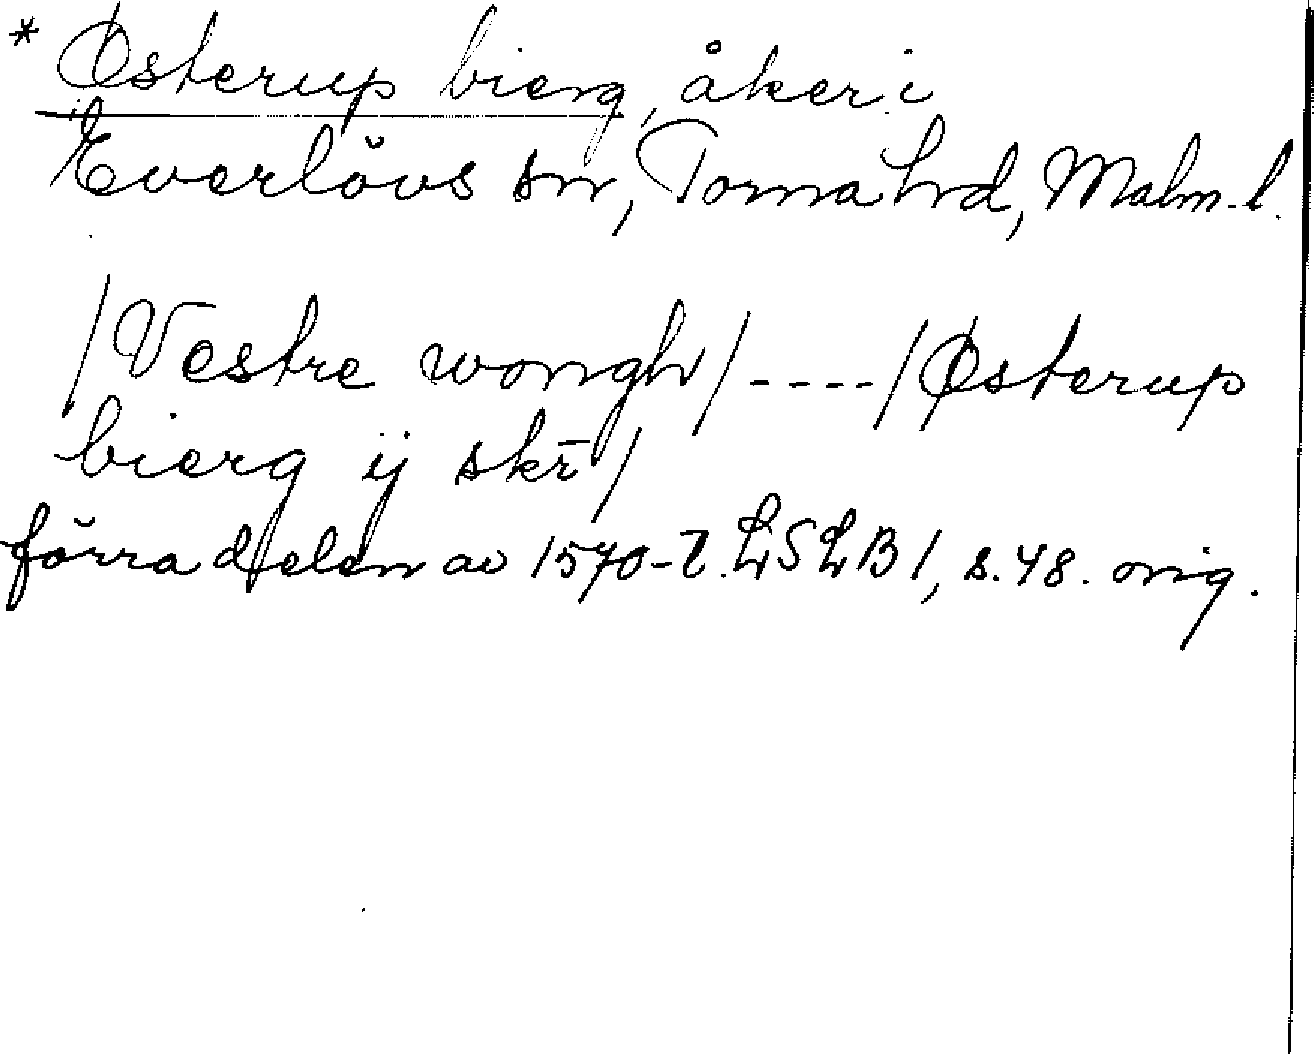 * Østerup bierg, åker i
Everlövs sn, Torna hd, Malm. l.
/Vestre wongh/ - - - - /Østerup
bierg ij skr̄/
förra delen av 1570-t. LSLB 1, s. 48. orig.